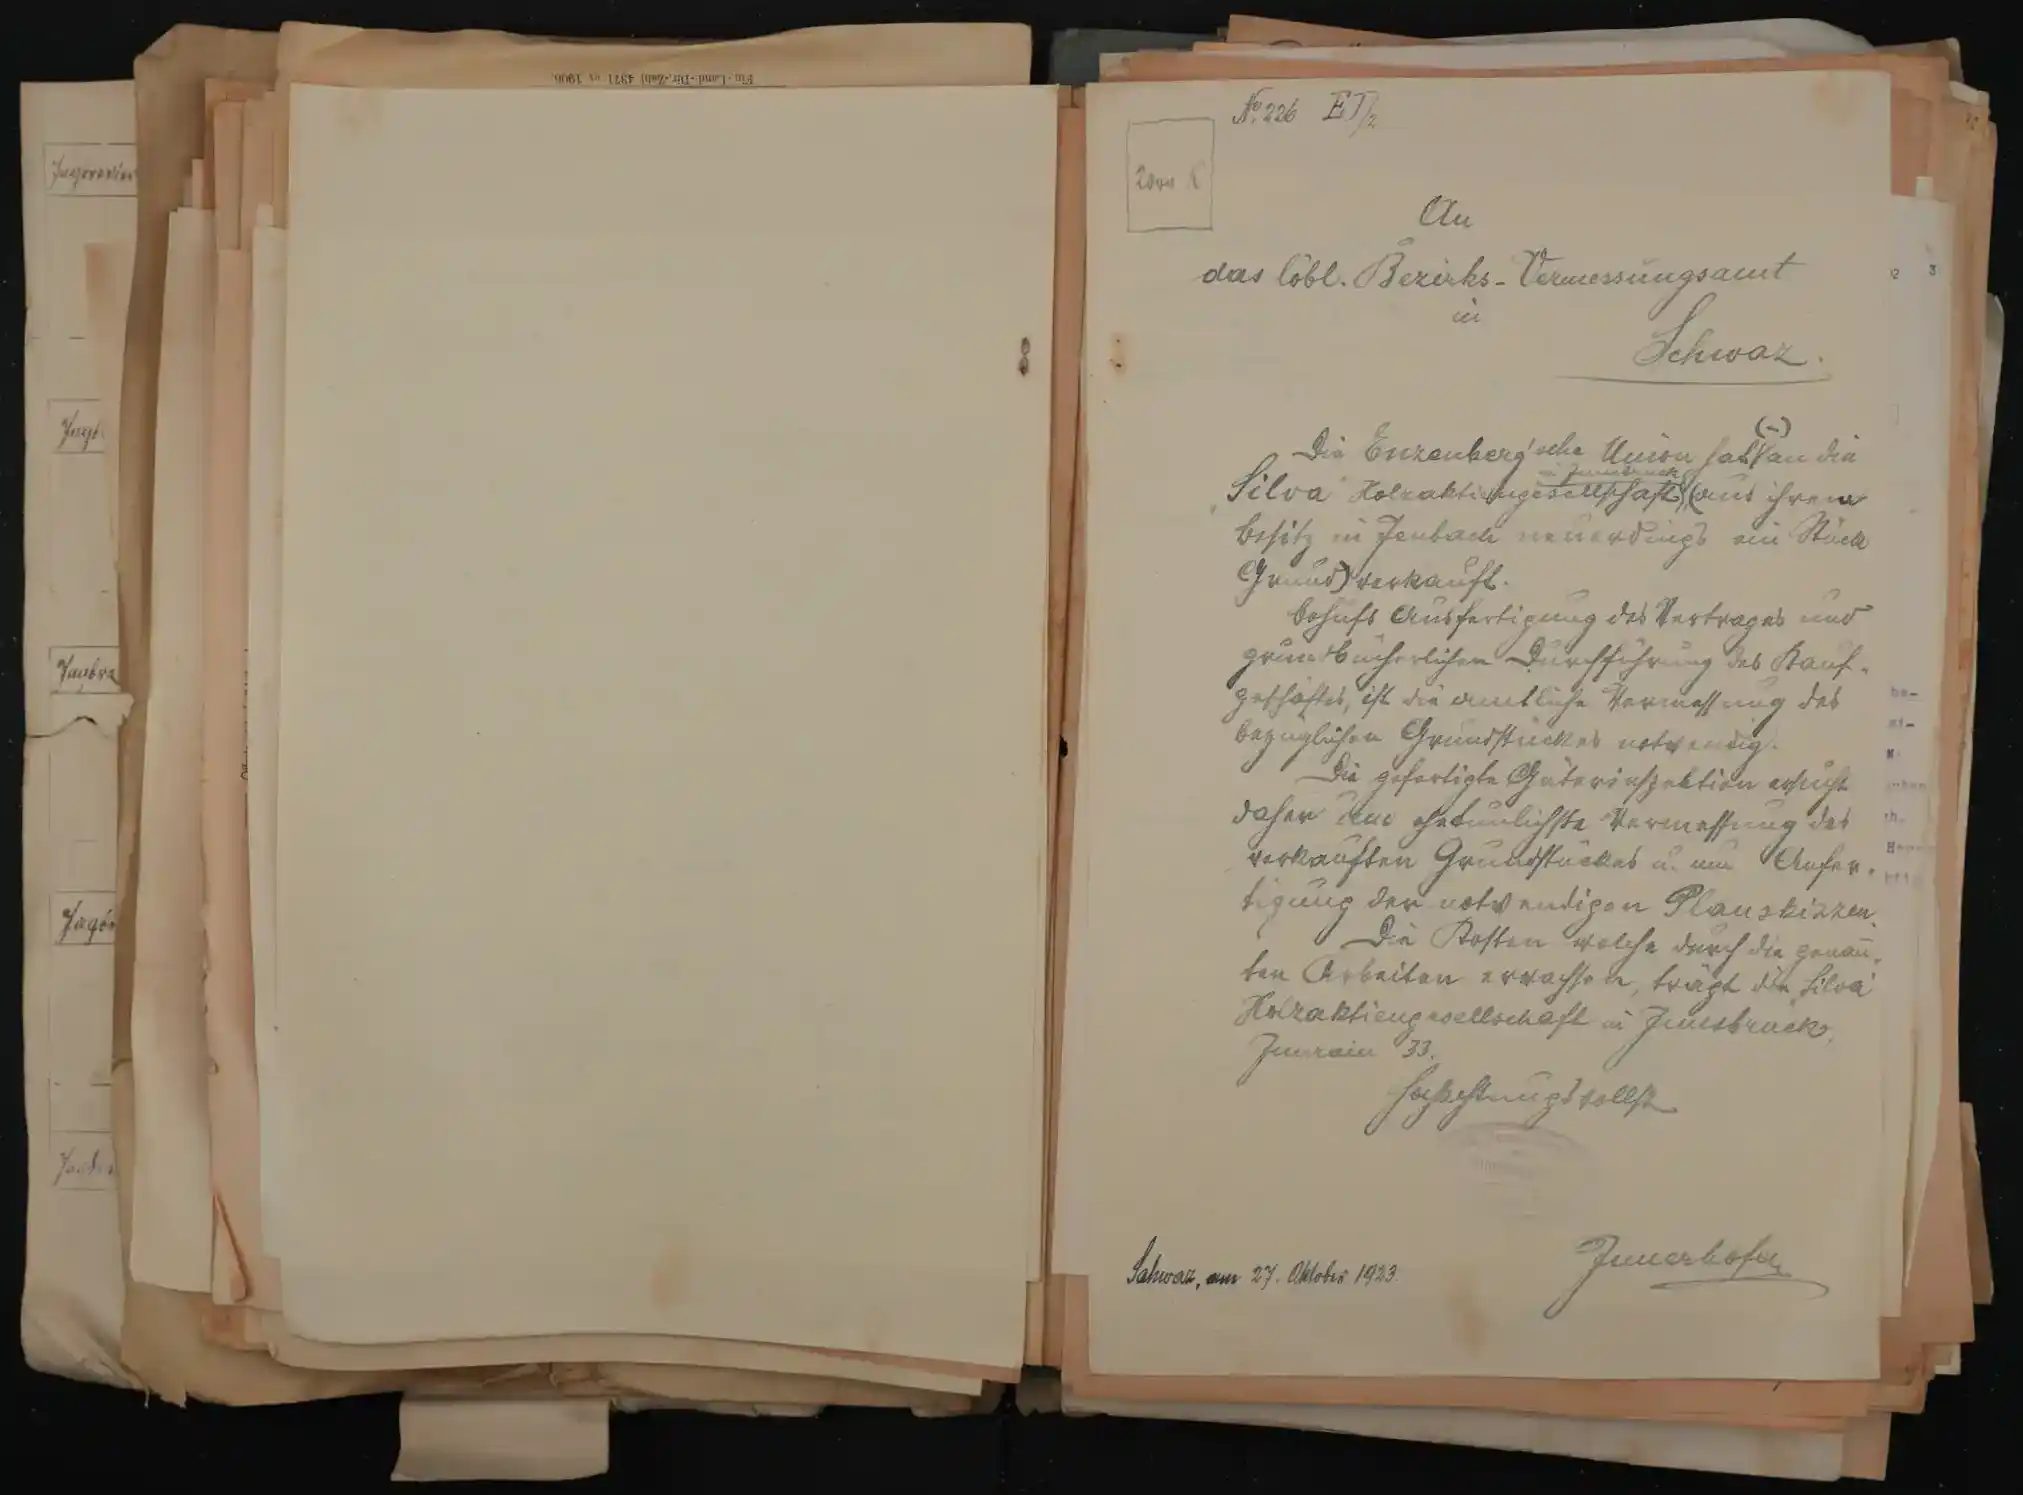 Fin.-Land.-Dir.-Zahl 4371 ex 1906.
Jagdrevier
No. 226 ET/2
2000 K
An
das löbl. Bezirks-Vermessungsamt
in
Schwaz.
(-)
Die Enzenberg'sche Union hat (an die
in Innsbruck
"Silva" Holzaktiengesellschaft) (aus ihrem
Besitz in Jenbach neuerdings ein Stück
Grund) verkauft.
Behufs Ausfertigung des Vertrages und
grundbücherlichen Durchführung des Kauf-
geschäftes, ist die amtliche Vermessung des
bezüglichen Grundstückes notwendig.
Die gefertigte Güterinspektion ersucht
daher um ehetunlichste Vermessung des
verkauften Grundstückes u. um Anfer-
tigung der notwendigen Planskizzen.
Die Kosten welche durch die genann-
ten Arbeiten erwachsen, trägt die "Silva"
Holzaktiengesellschaft in Innsbruck,
Innrain 33.
Hochachtungsvollst
Innerhofer
Schwaz, am 27. Oktober 1923.